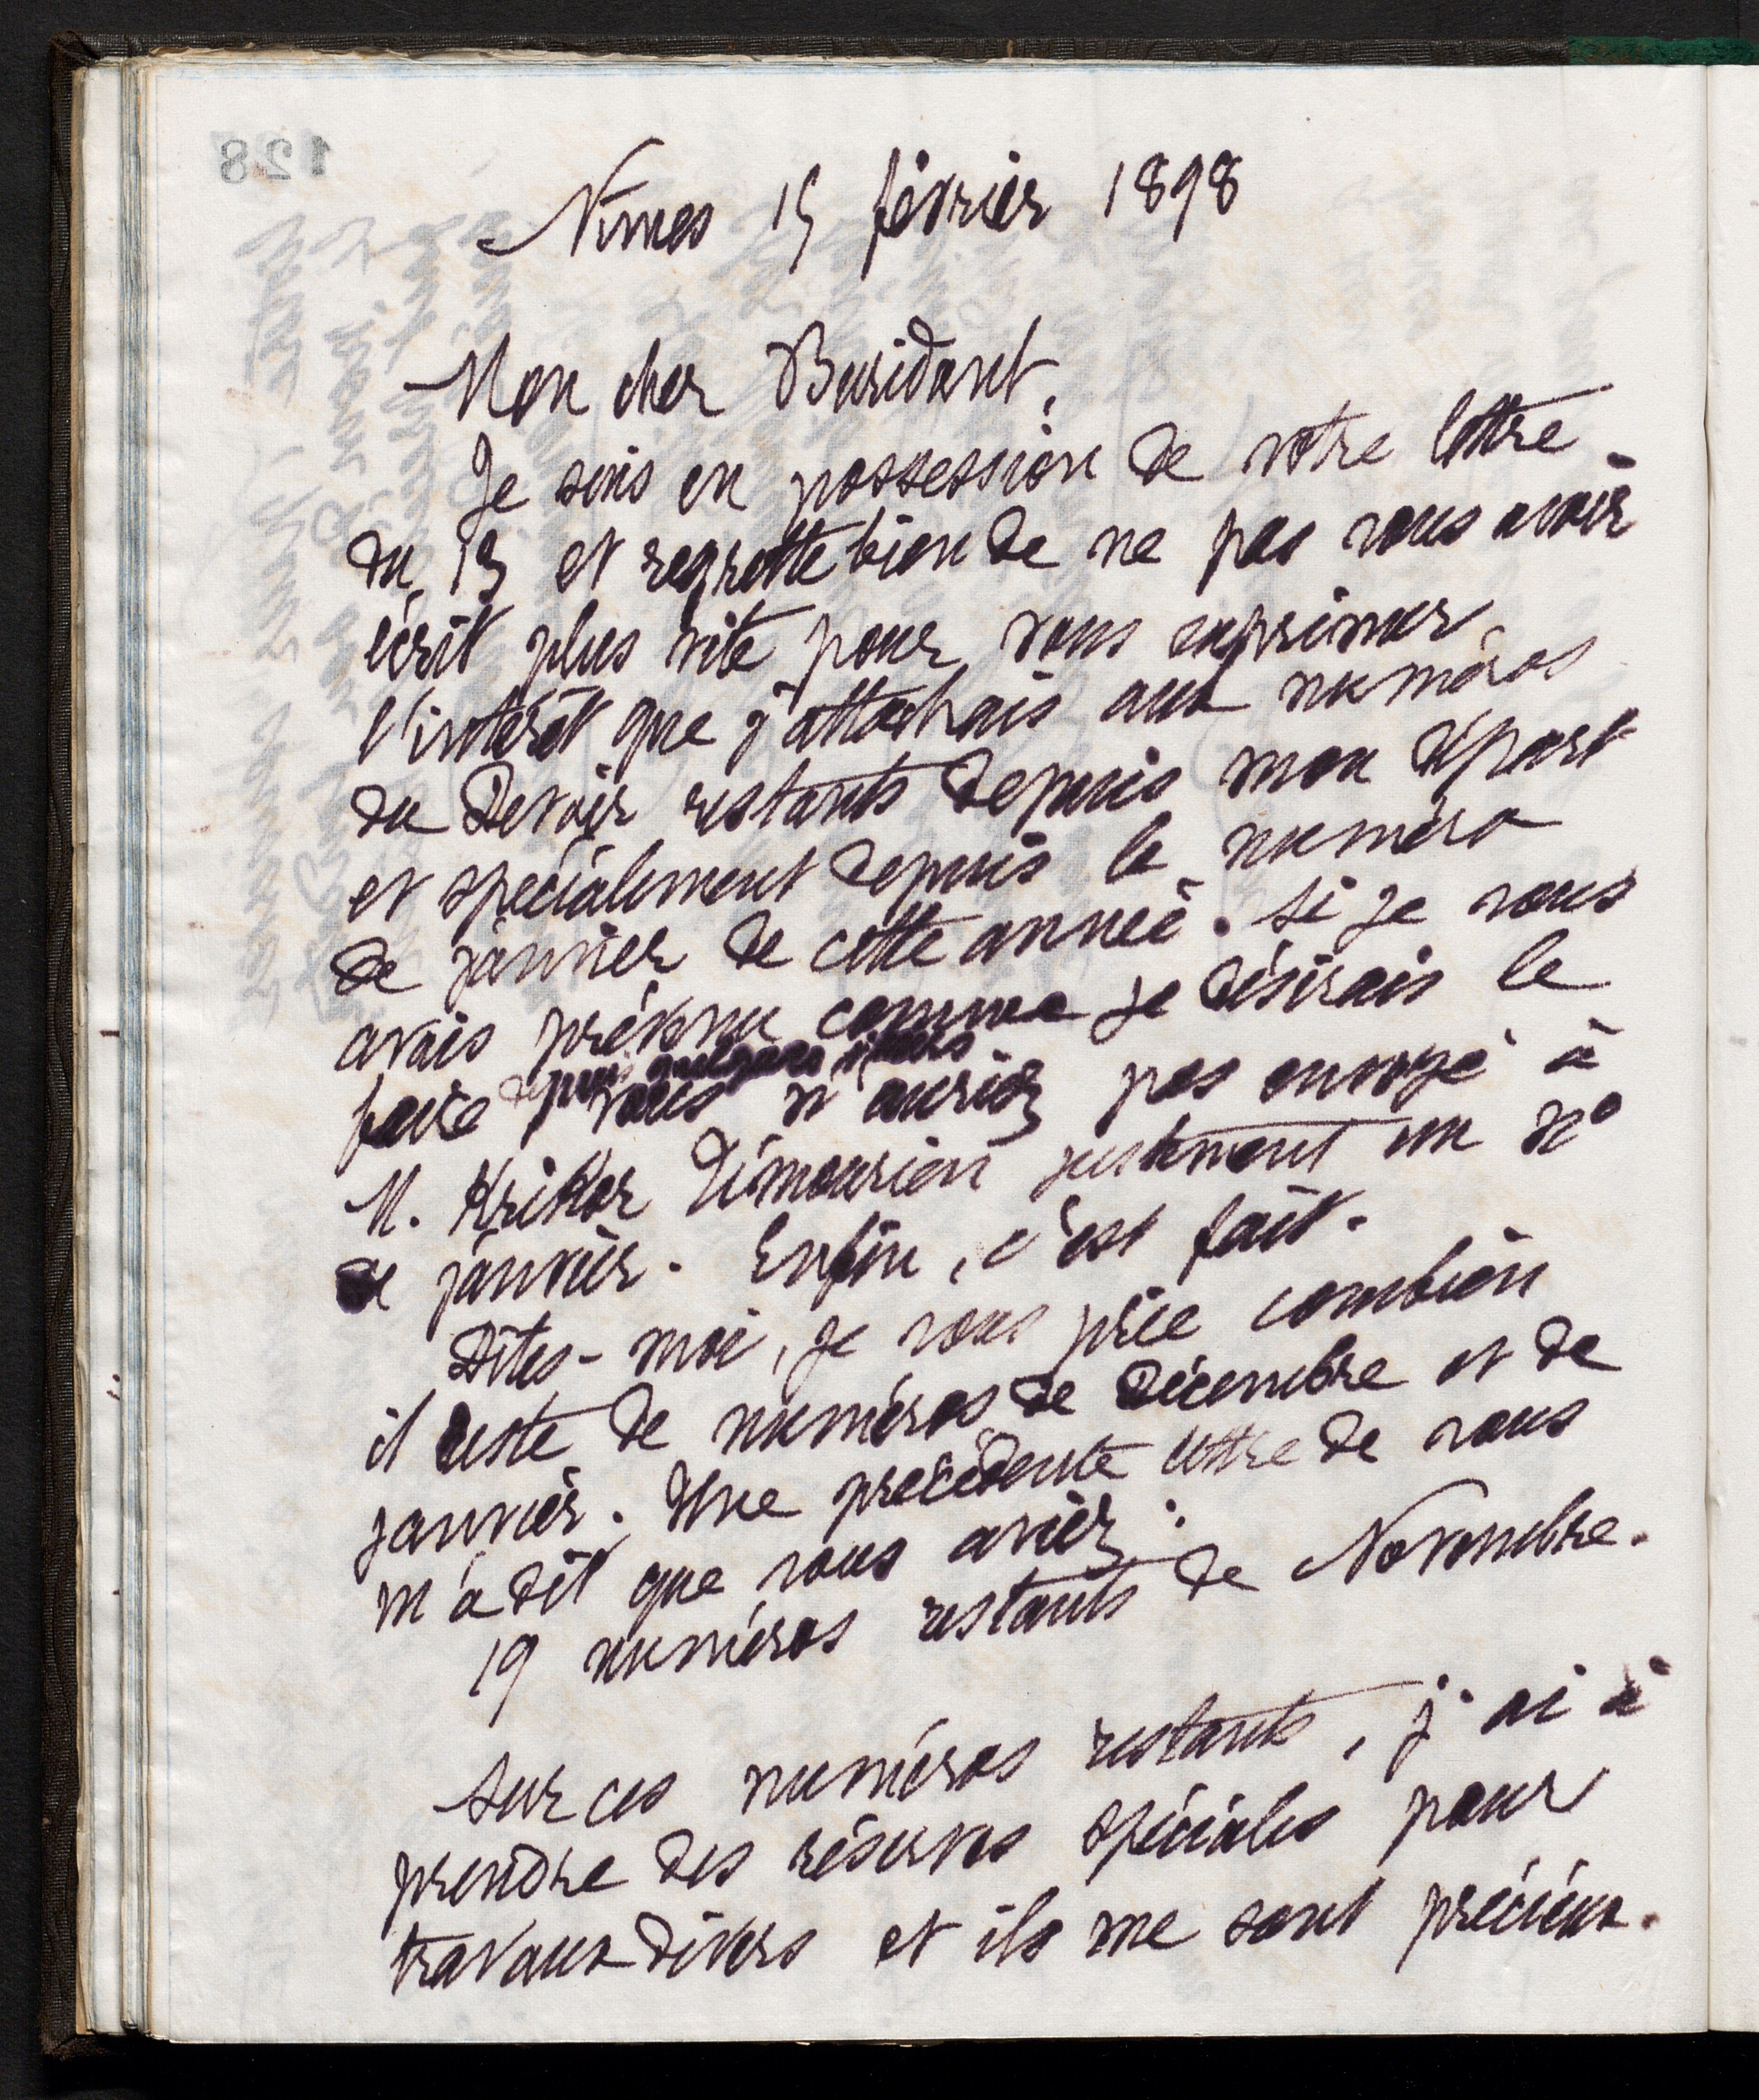 128
Nimes 15 février 1898
Mon cher Buridant,
Je suis en possession de votre lettre
du 13 et regrette bien de ne pas vous avoir
écrit plus vite pour vous exprimer
l'intérêt que j'attachais aux numéros
du Devoir restants depuis mon départ
et spécialement depuis le numéro
de janvier de cette année. Si je vous
avais prévenu comme je désirais le
faire depuis quelques jours
vous n'auriez pas envoyé à
M. Krikor Dimourien justement un N°
de janvier. Enfin, c'est fait.
Dites-moi, je vous prie combien
il reste de numéros de décembre et de
janvier. Une précédente lettre de vous
m'a dit que vous aviez :
19 numéros restants de Novembre.
Sur ces numéros restants, j'ai à
prendre des réserves spéciales pour
travaux divers et ils me sont précieux.